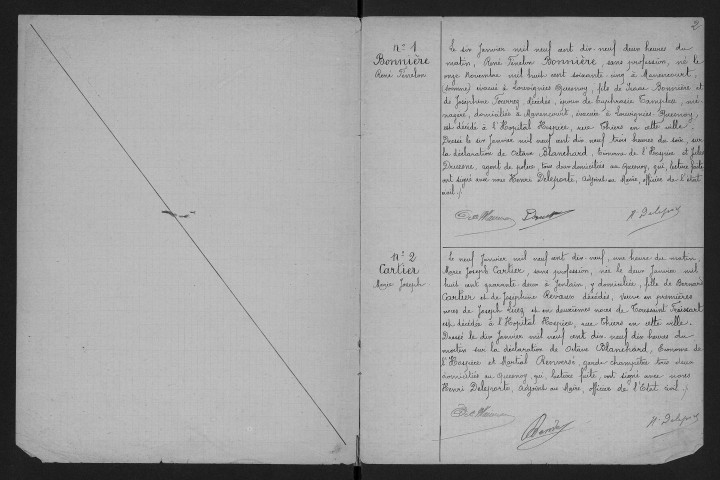 2
n° 1
Bonnière
René Fénelon
Le six Janvier mil neuf cent dix-neuf deux heures du
matin, René Fénelon Bonnière, sans profession, né le
onze Novembre mil huit cent soixante-cinq à Manancourt,
(Somme) évacué à Louvignies Quesnoy, fils de Isaac Bonnière et
de Joséphine décédés, époux de Euphrasie mé-
nagère, domiciliés à Manancourt, évacués à Louvignies-Quesnoy,
est décédé à l'Hôpital Hospice, rue Thiers en cette ville.
Dressé le six Janvier mil neuf cent dix neuf trois heures du soir, sur
la déclaration de Octave Blanchard, Econome de l'Hospice et Jules
agent de police, tous deux domiciliés au Quesnoy, qui, lecture faite,
ont signé avec nous Henri Deleporte, Adjoint au Maire, officier de l'état
civil ./.
H. Deleporte
n° 2
Carlier
Marie Joseph
Le neuf Janvier mil neuf cent dix-neuf, une heure du matin,
Marie Joseph Carlier, sans profession, née le deux Janvier mil
huit cent quarante deux à Jenlain, y domiciliée, fille de Bernard
Carlier et de Joséphine Revaux décédés, veuve en premières
noces de Joseph et en deuxièmes noces de Toussaint
est décédée à l'Hôpital Hospice, rue Thiers en cette ville.
Dressé le dix Janvier mil neuf cent dix neuf dix heures du
matin sur la déclaration de Octave Blanchard, Econome de
l'Hospice et Martial Renverse, garde champêtre tous deux
domiciliés au Quesnoy qui, lecture faite, ont signé avec nous
Henri Deleporte, Adjoint au Maire, officier de l'Etat civil ./.
H. Deleporte